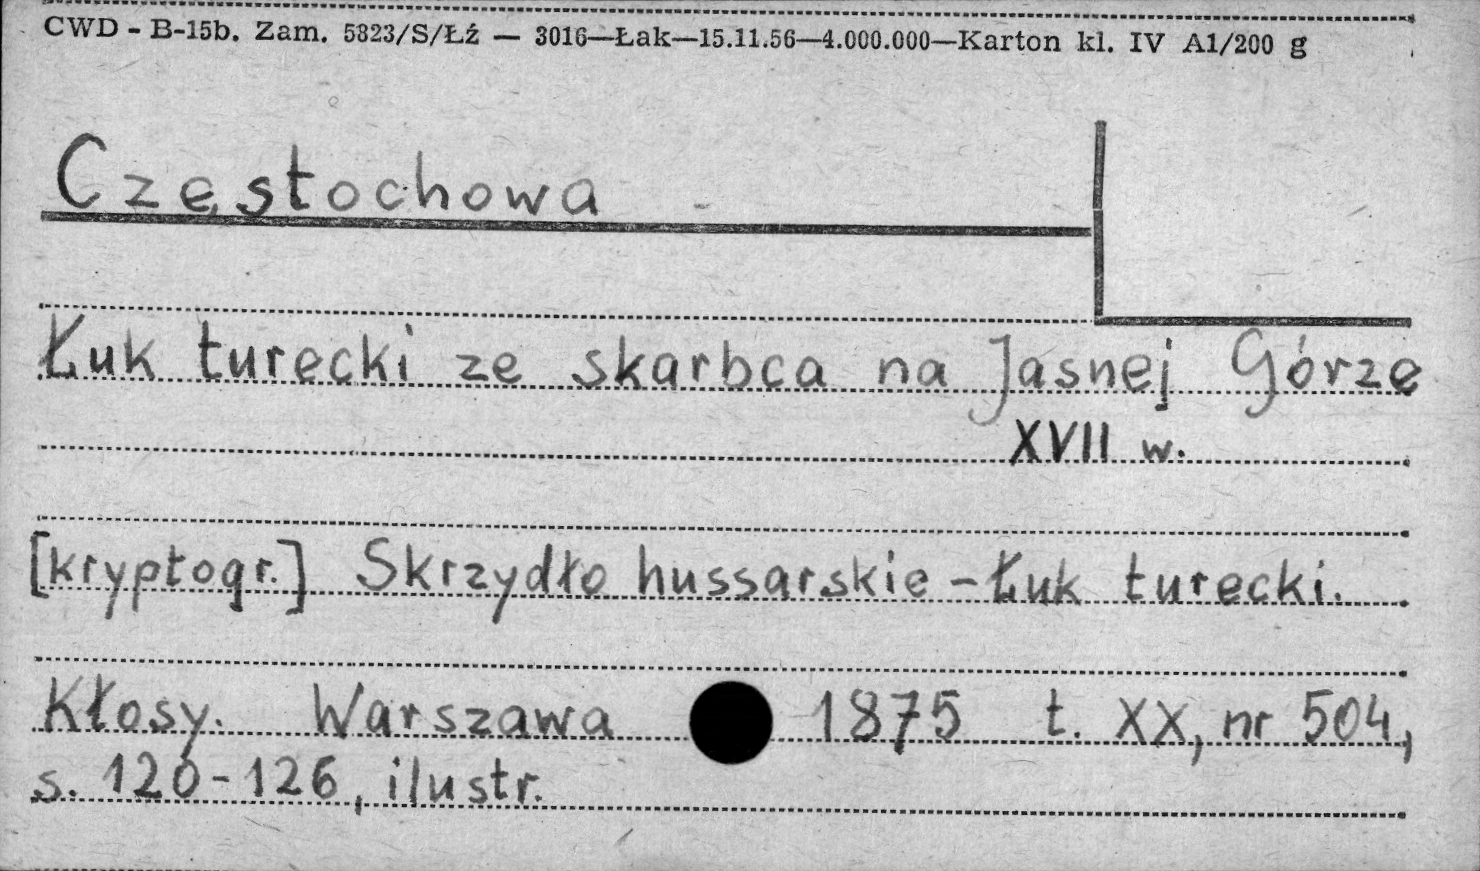 CWD - B-15b. Zam. 5823/S/Łź — 3016—Łak—15.11.56—4.000.000—Karton kl. IV A1/200 g
Częstochowa
Łuk turecki ze skarbca na Jasnej Górze
XVII w.
[kryptogr.] Skrzydło hussarskie - Łuk turecki.
Kłosy. Warszawa 1875 t. XX, nr 504,
s. 120-126, ilustr.